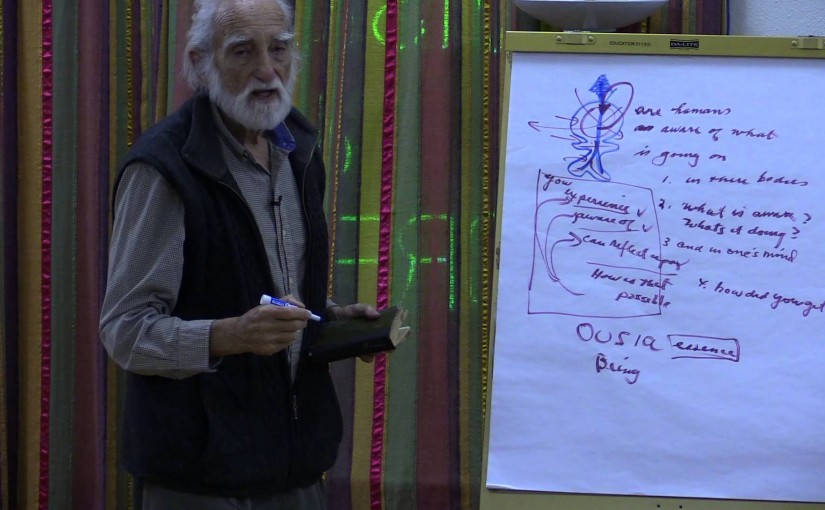 DA-LITE
are humans
aware of what
is going on
1. in there bodies
2. What is aware?
What's it doing?
3 and in one's mind
4. how did you get
You
experience
aware of
Can reflect upon
How is that
possible
OUSIA essence
Being